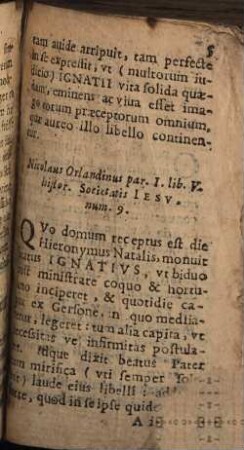 5
tam auide arripuit, tam perfecte
in se expressit, vt (multorum iu-
dicio) IGNATII vita solida quæ-
dam, eminens ac viua esset ima-
go eorum præceptorum omnium,
quæ aureo illo libello continen-
tur.
Nicolaus Orlandinus par. I. lib. V.
histor. Societatis IESV.
num. 9.
QVo domum receptus est die
Hieronymus Natalis, monuit
IGNATIVS, vt biduo
ministrare coquo & hortu-
inciperet, & quotidie ca-
ex Gersone, in quo media-
legeret: tum alia capita, vt
necessitas ve infirmitas postula-
dixit beatus Pater
mirifica (vti semper
laude eius libelli
quod in se ipse quide
A